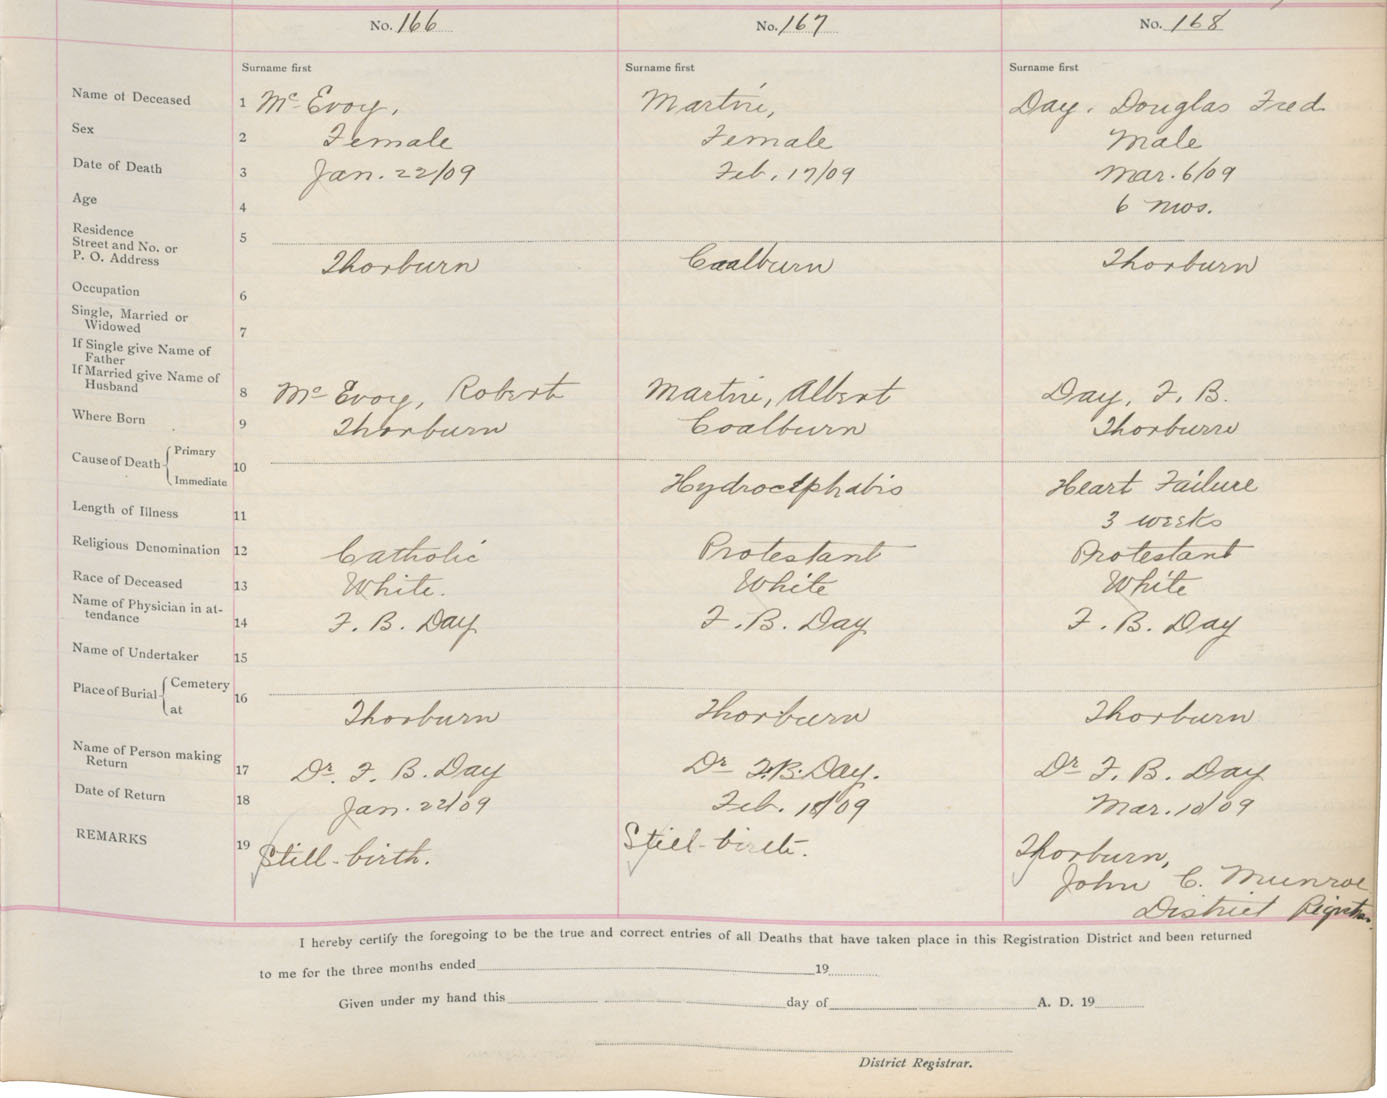 No. 166 No. 167 No. 168
Surname first Surname first Surname first
Name of Deceased 1 McEvoy, Martin, Day, Douglas Fred
Sex 2 Female Female Male
Date of Death 3 Jan. 22/09 Feb. 17/09 Mar. 6/09
Age 4 6 mos.
Residence 5
Street and No. or
P. O. Address Thorburn Coalburn Thorburn
Occupation 6
Single, Married or
Widowed 7
If Single give Name of
Father
If Married give Name of
Husband 8 McEvoy, Robert Martin, Albert Day, F. B.
Where Born 9 Thorburn Coalburn Thorburn
Cause of Death Primary 10
Immediate Hydrocephabis Heart Failure
Length of Illness 11 3 weeks
Religious Denomination 12 Catholic Protestant Protestant
Race of Deceased 13 White. White White
Name of Physician in at-
tendance 14 F. B. Day F. B. Day F. B. Day
Name of Undertaker 15
Place of Burial Cemetery 16
at Thorburn Thorburn Thorburn
Name of Person making
Return 17 Dr. F. B. Day Dr F. B. Day. Dr F. B. Day
Date of Return 18 Jan. 22/09 Feb. /09 Mar. 10/09
REMARKS 19 Still-birth. Still-birth. Thorburn,
John C. Munroe
District Registrar.
I hereby certify the foregoing to be the true and correct entries of all Deaths that have taken place in this Registration District and been returned
to me for the three months ended 19
Given under my hand this day of A. D. 19
District Registrar.